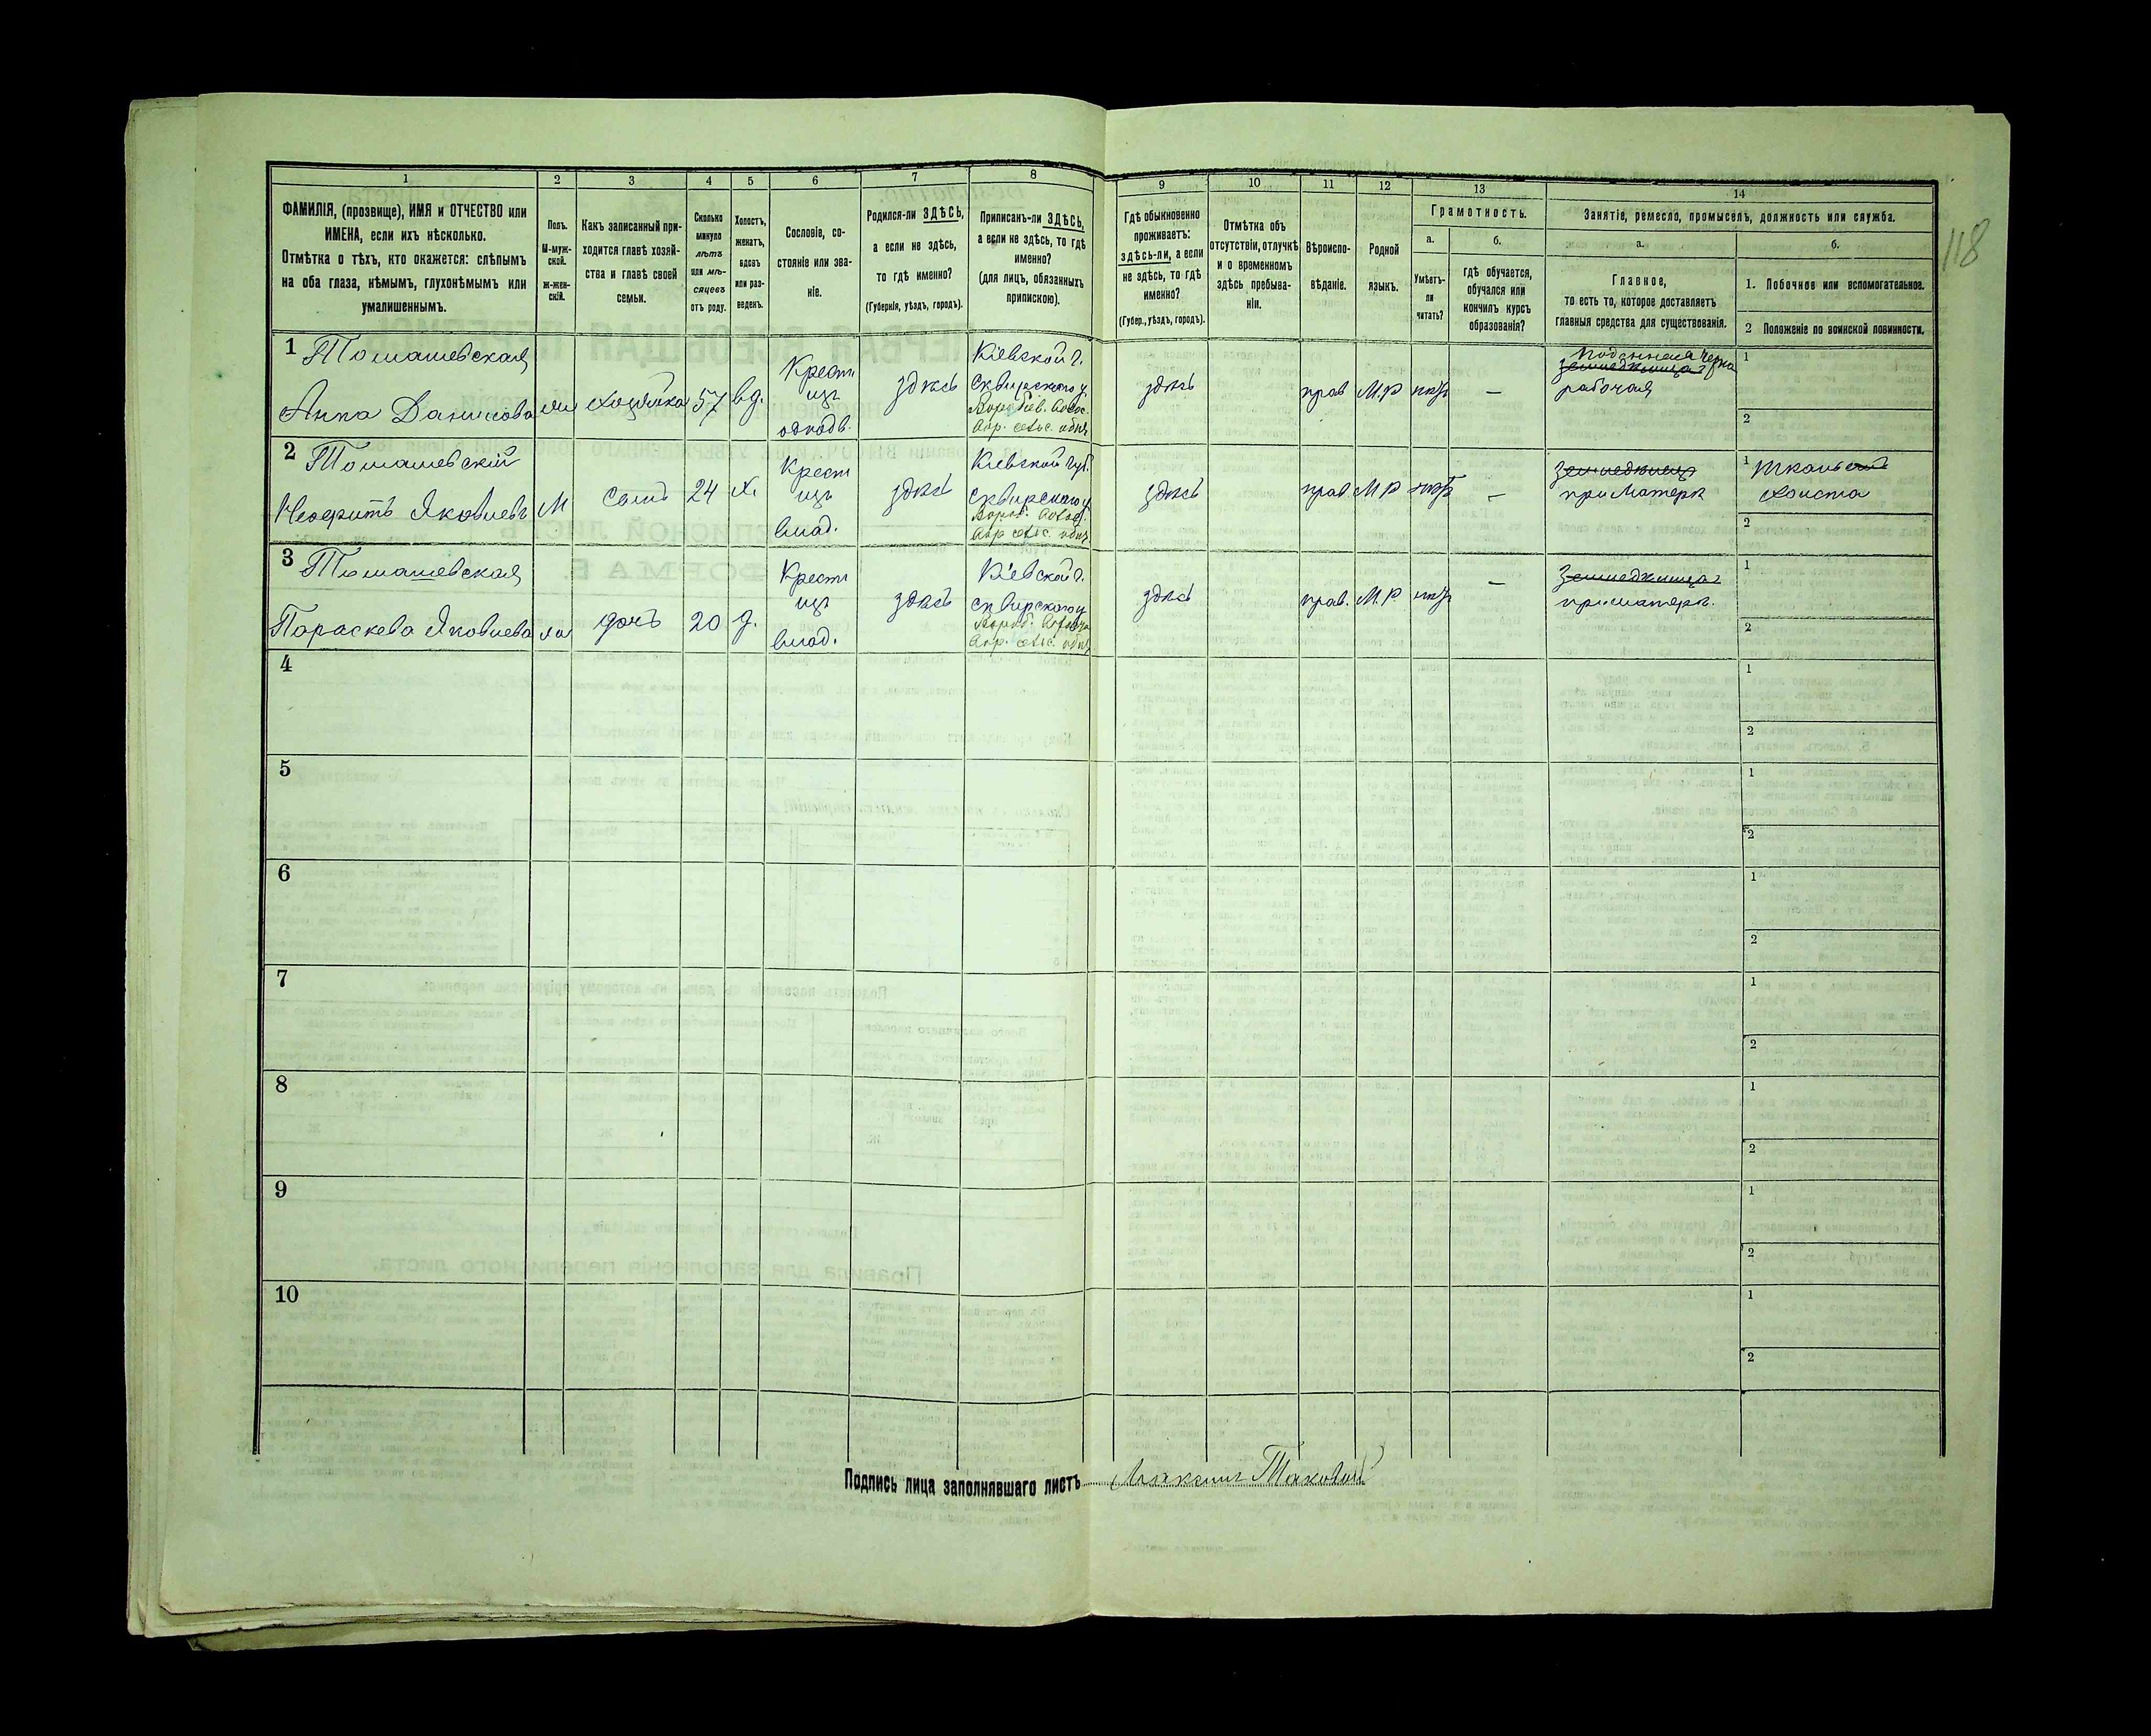 118
1 2 3 4 5 6 7 8 9 10 11 12 13 14
ФАМИЛІЯ, (прозвище), ИМЯ и ОТЧЕСТВО или
ИМЕНА, если ихъ нѣсколько.
Отмѣтка о тѣхъ, кто окажется: слѣпымъ
на оба глаза, нѣмымъ, глухонѣмымъ или
умалишеннымъ.
Полъ.
М-муж-
ской.
ж-жен-
скій.
Какъ записанный при-
ходится главѣ хозяй-
ства и главѣ своей
семьи.
Сколько
минуло
лѣтъ
или мѣ-
сяцевъ
отъ роду.
Холостъ,
женатъ,
вдовъ
или раз-
веденъ.
Сословіе, со-
стояніе или зва-
ніе.
Родился-ли ЗДѢСЬ,
а если не здѣсь,
то гдѣ именно?
(Губернія, уѣздъ, городъ).
Приписанъ-ли ЗДѢСЬ,
а если не здѣсь, то гдѣ
именно?
(для лицъ, обязанныхъ
припискою).
Гдѣ обыкновенно
проживаетъ:
здѣсь-ли, а если
не здѣсь, то гдѣ
именно?
(Губер., уѣздъ, городъ).
Отмѣтка объ
отсутствіи, отлучкѣ
и о временномъ
здѣсь пребыва-
ніи.
Вѣроиспо-
вѣданіе.
Родной
языкъ.
Грамотность.
а.
Умѣетъ-
ли
читать?
б.
гдѣ обучается,
обучался или
кончилъ курсъ
образованія?
Занятіе, ремесло, промыселъ, должность или служба.
а.
Главное,
то есть то, которое доставляетъ
главныя средства для существованія.
б.
1. Побочное или вспомогательное.
2 Положеніе по воинской повинности.
1 Томашевская
Анна Данилова
жи
хозяйка
57
вд.
Крест
изъ
однодв.
здѣсь
Кіевской г.
Сквирского у
здѣсь
прав
М.Р
нѣтъ
—
рабочая
1
2
2 Томашевскій
Неофитъ Яковлевъ
М
сынъ
24
х.
Крест
изъ
влад.
здѣсь
Кіевской губ.
Сквирского у
здѣсь
прав
М Р
нѣтъ
—
земледѣлецъ
при матери
1
холста
2
3 Томашевская
Параскева Яковлева
жи
дочь
20
д.
Крест
изъ
влад.
здѣсь
Кіевской г.
Сквирского у
здѣсь
прав.
М.Р
нѣтъ
—
при матери.
1
2
4
1
2
5
1
2
6
1
2
7
1
2
8
1
2
9
1
2
10
1
2
Подпись лица заполнявшаго листъ